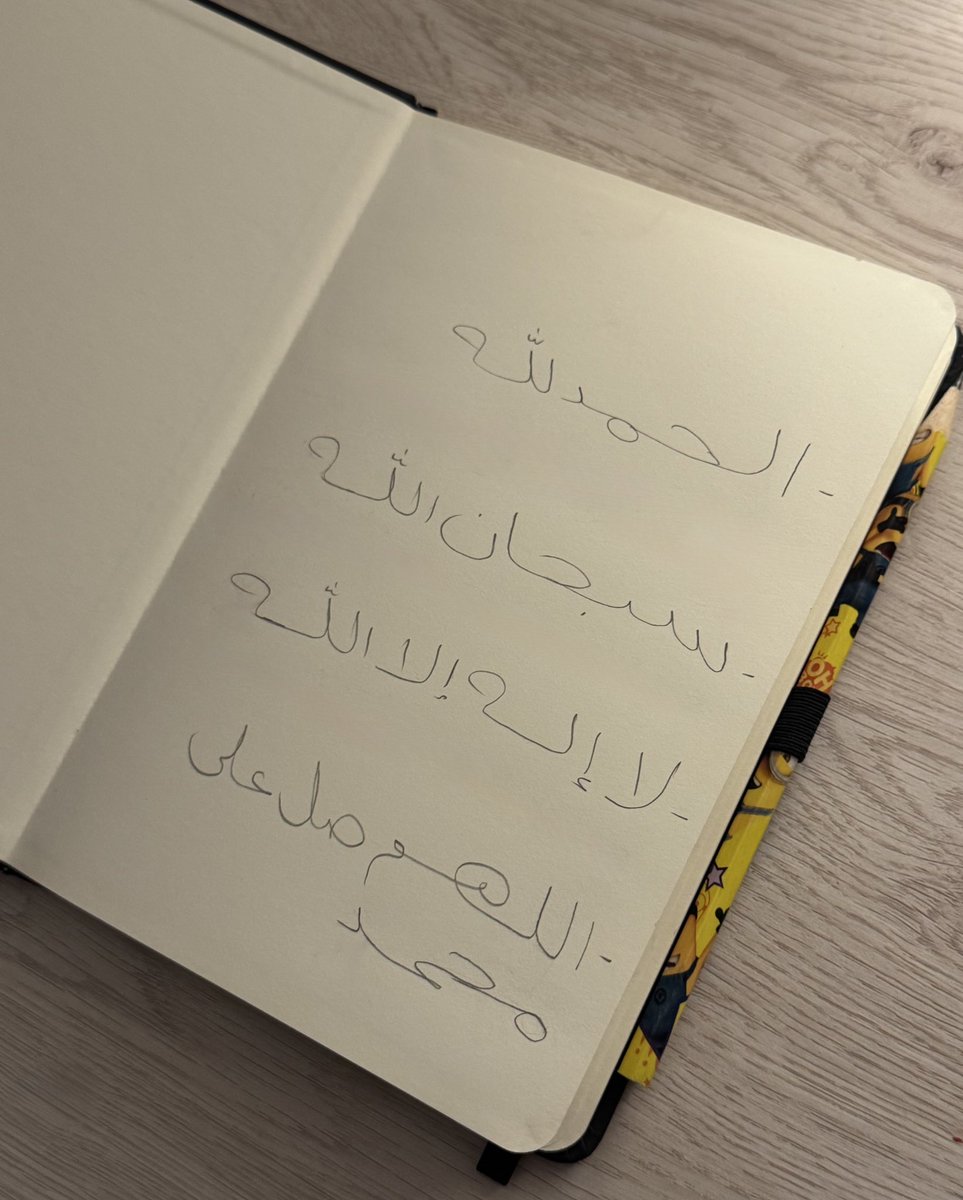 - الحمد لله
- سبحان الله
- لا إله إلا الله
- اللهم صل على
محمد